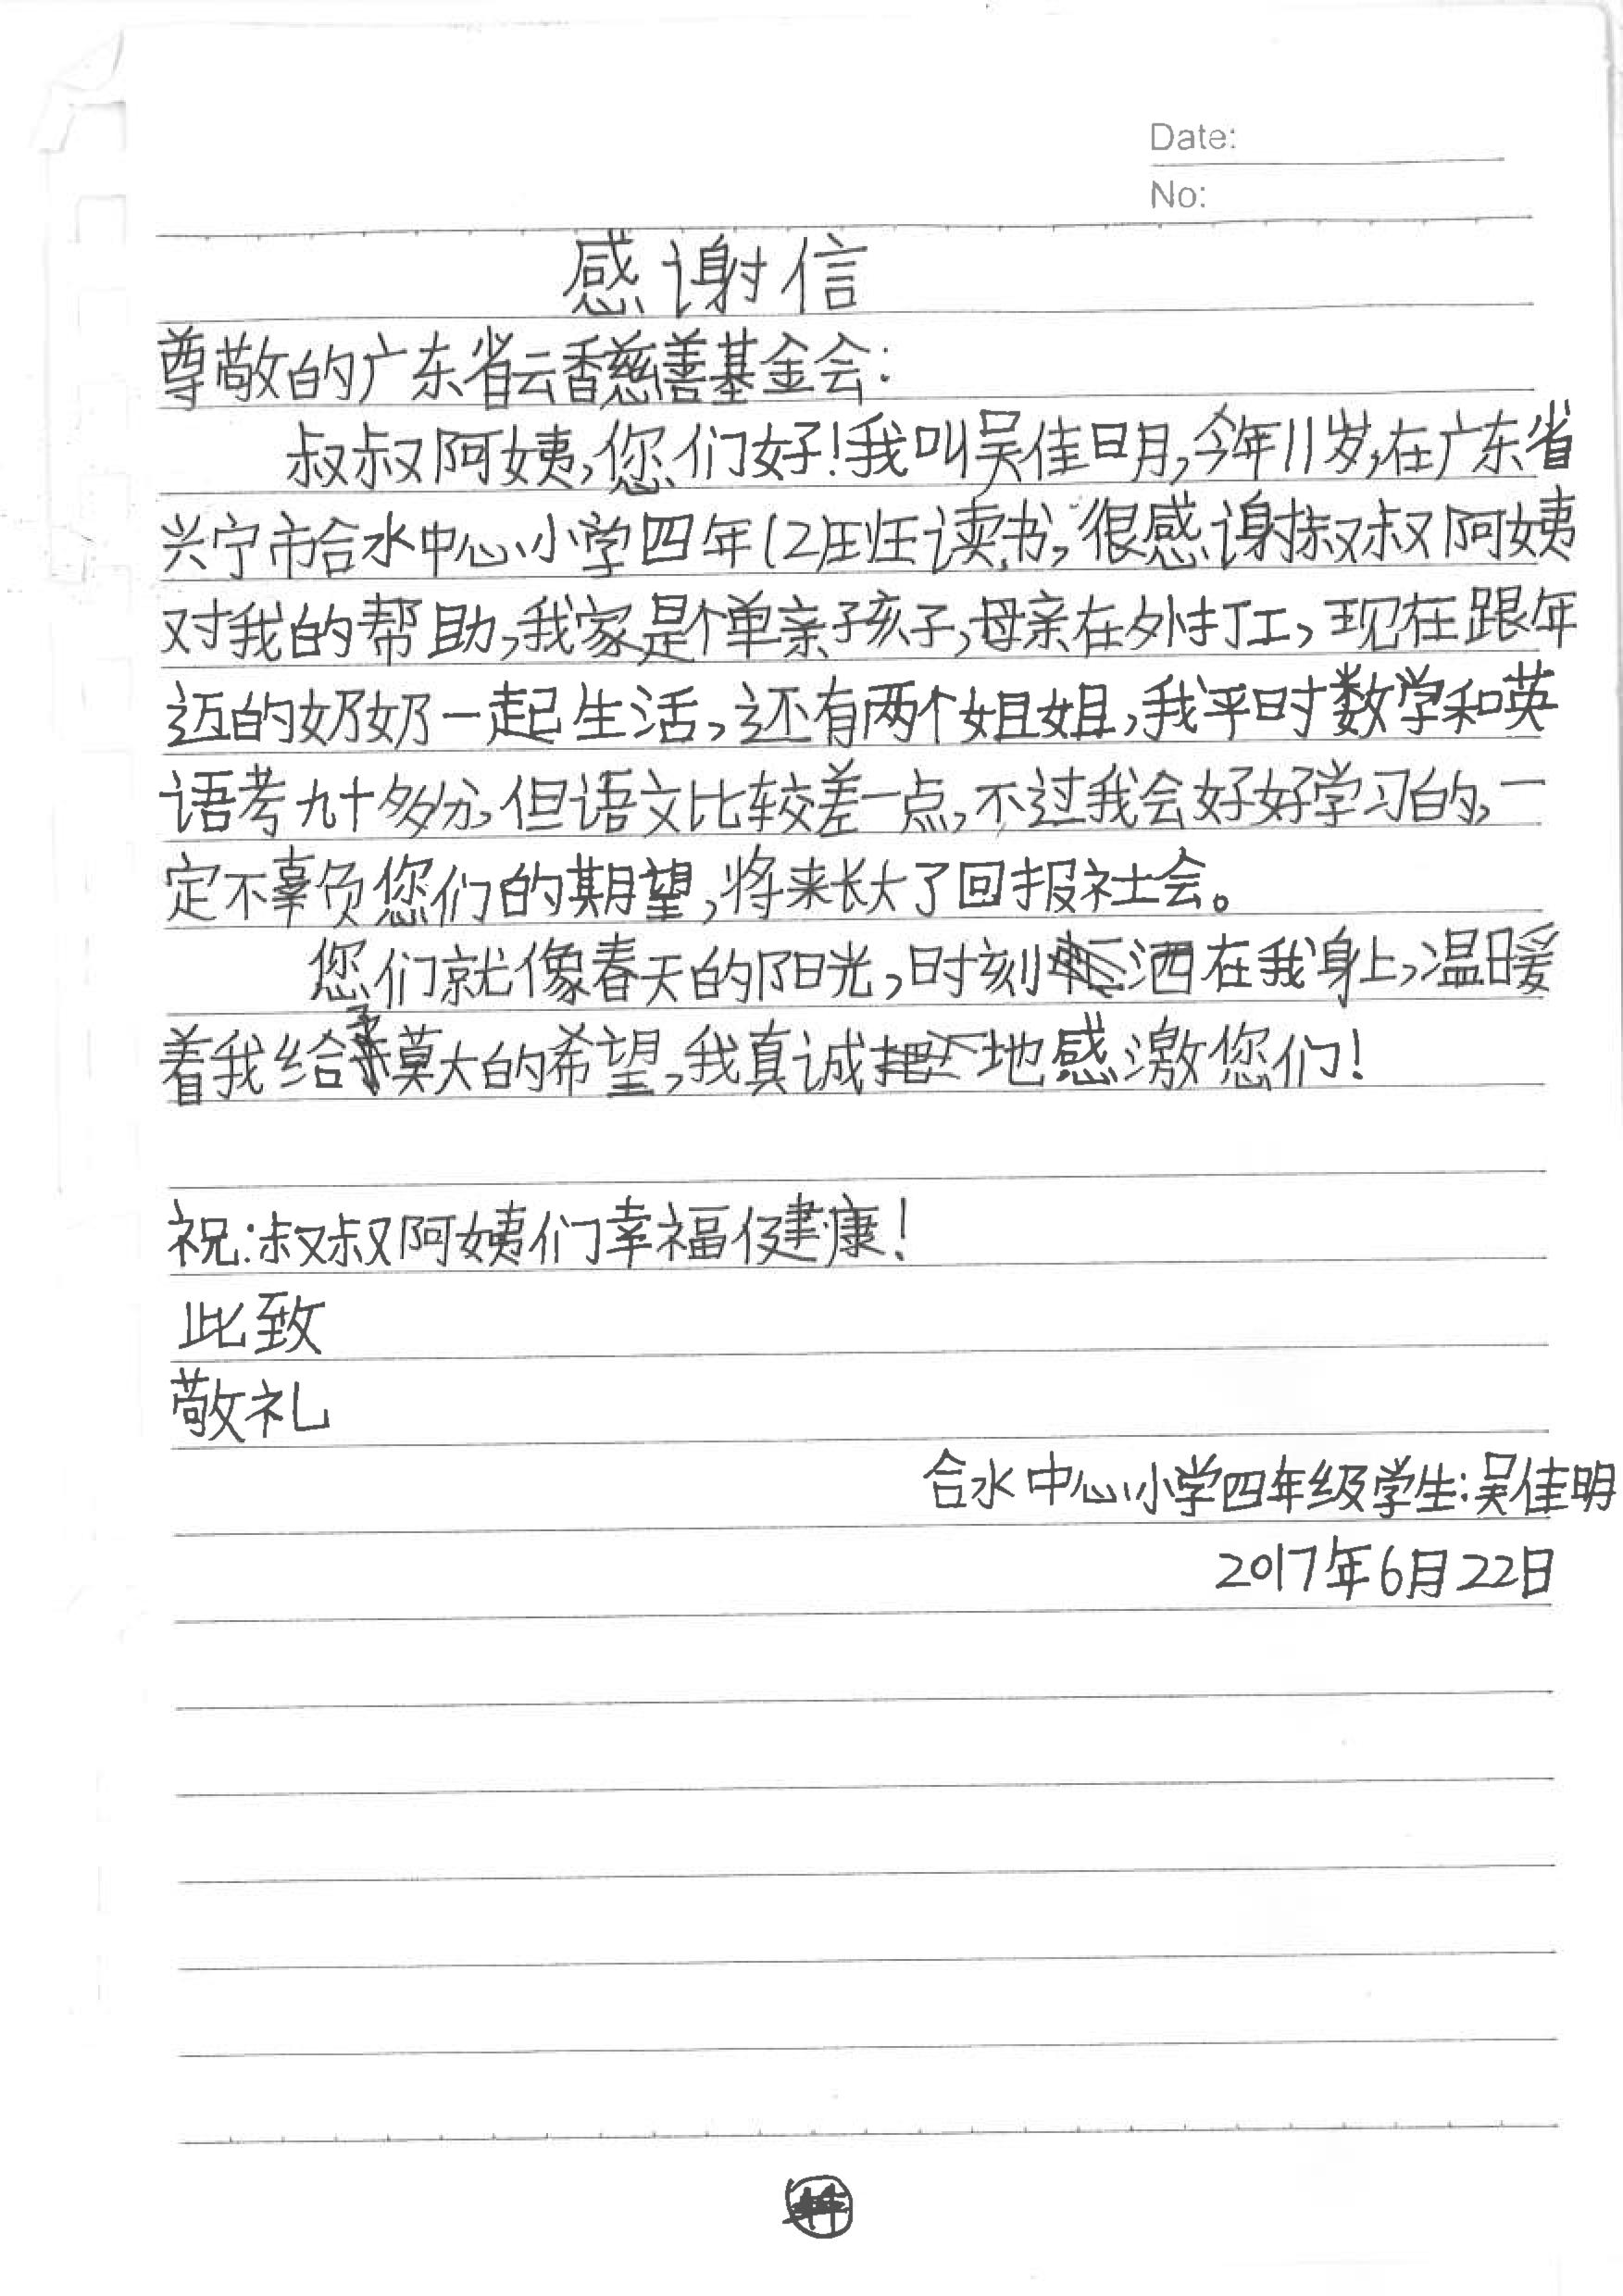 Date:
No:
感谢信
尊敬的广东省云香慈善基金会：
叔叔阿姨,您们好!我叫吴佳明,今年11岁,在广东省
兴宁市合水中心小学四年(2)班读书,很感谢叔叔阿姨
对我的帮助,我家是个单亲子孩子,母亲在外打工,现在跟年
迈的奶奶一起生活,还有两个姐姐,我平时数学和英
语考九十多分,但语文比较差一点,不过我会好好学习的,一
定不辜负您们的期望,将来长大了回报社会。
您们就像春天的阳光,时刻洒在我身上,温暖
着我给予莫大的希望,我真诚地感激您们!
祝:叔叔阿姨们幸福健康!
此致
敬礼
合水中心小学四年级学生:吴佳明
2017年6月22日